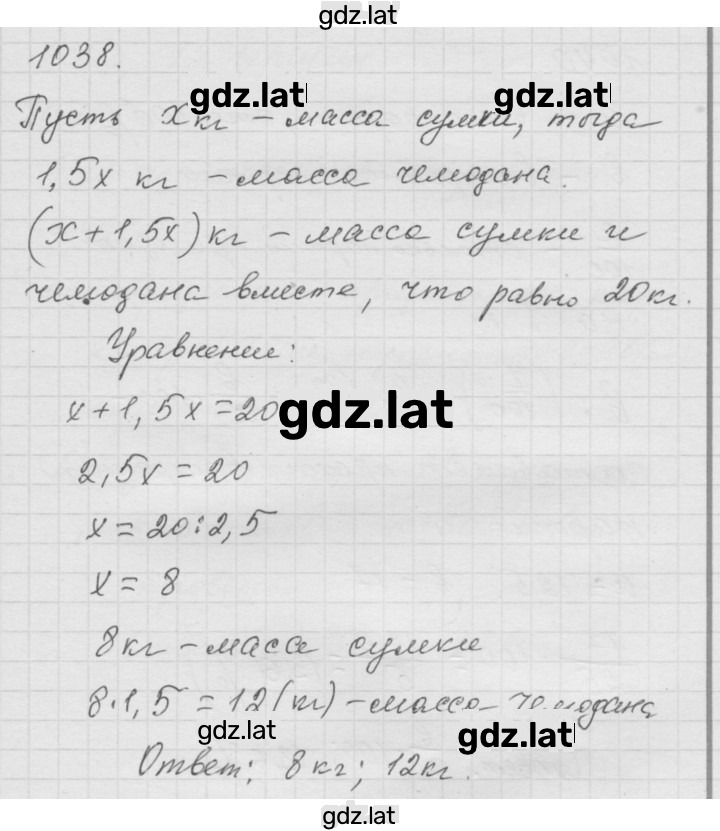 gdz.lat
1038.
gdz.lat gdz.lat
Пусть x кг – масса сумки, тогда
1,5x кг – масса чемодана.
(x+1,5x) кг – масса сумки и
чемодана вместе, что равно 20 кг.
Уравнение:
x+1,5x=20
gdz.lat
2,5x=20
x=20:2,5
x=8
8 кг – масса сумки
8·1,5=12(кг) – масса чемодана
gdz.lat gdz.lat
Ответ: 8 кг; 12 кг.
gdz.lat